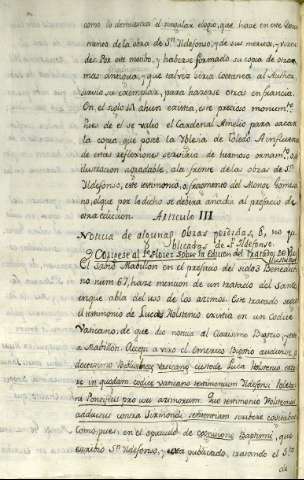 como lo demuestra el singular elogio, que hace en este
menes de la obra de Sn Ildefonso, y de sus meritos, y
des. Por este medio, y haberse formado su copia de otra
mas antigua, y que talvez seria coetanea al Author,
su exemplar, para hazerse otras en francia.
En el siglo existia este precioso monumto.
Pues de el se valio el Cardenal para sacar
la copia, que posee la Yglesia de Toledo. A influxo
de estas reflexiones serviria de hermoso ornamto, e
ilustracion agradable, a la frente de las obras de Sn
Ildefonso, este testimonio, o fragmento del Monge Gome
sano, el que por lo dicho se devia añadir al prefacio de
una edicion. Articulo III
Noticia de algunas obras perdidas, ó, no pu
blicadas de Sn Ildefonso.
Corrigese al Pe. Florez sobre la edicion del tratado de
El Sabio Mabillon en el prefacio del siglo 3 Benedict
no num 67, haze mencion de un tratado del Santo
en que abla del uso de los azimos. Este tratado segun
el testimonio de Lucas Holstenio existia en un Codice
Vaticano, de que dio noticia al Clarisimo Bigocio, y este
a Mabillon. Accepi a viro cl. Emerico Bigotio
Vaticanae custode Luca Holstenio, exta
re in quodam codice vaticano testimonium Ildefonsi Toleta
ni Pontificis pro usu azimorum. Quo testimonio Holstenius
adversus contra Sirmondi sententiam scribere cogitabat
como pues en el opusculo de cognitione Baptismi, que
escribio Sn Ildefonso, y esta publicado, tratando el Sto
de